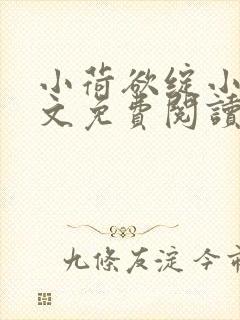 小荷欲綻小
文免費閱讀
九條友淀今市